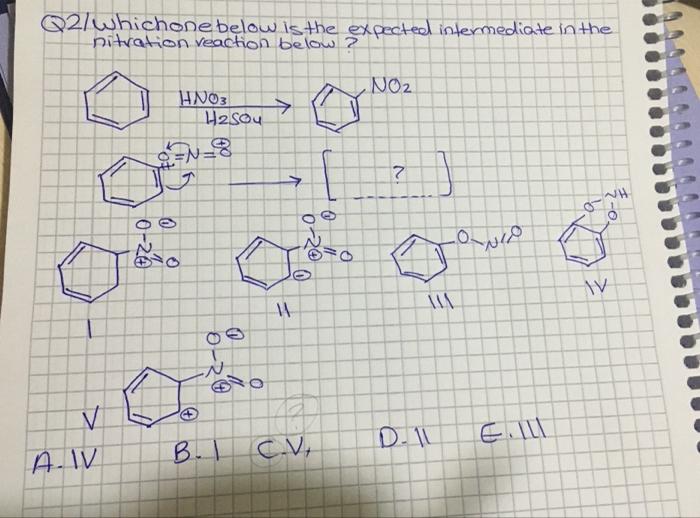 Q2/ Which one below is the expected intermediate in the
nitration reaction below?
HNO3
H2SO4
NO2
O=N=O
[ ? ]
O ⊖
N
⊕ O
I
O ⊖
N
⊕ O
⊖
II
O-N=O
III
O-NH
O
IV
O ⊖
N
⊕ O
⊕
V
A. IV B. I C. V, D. II E. III